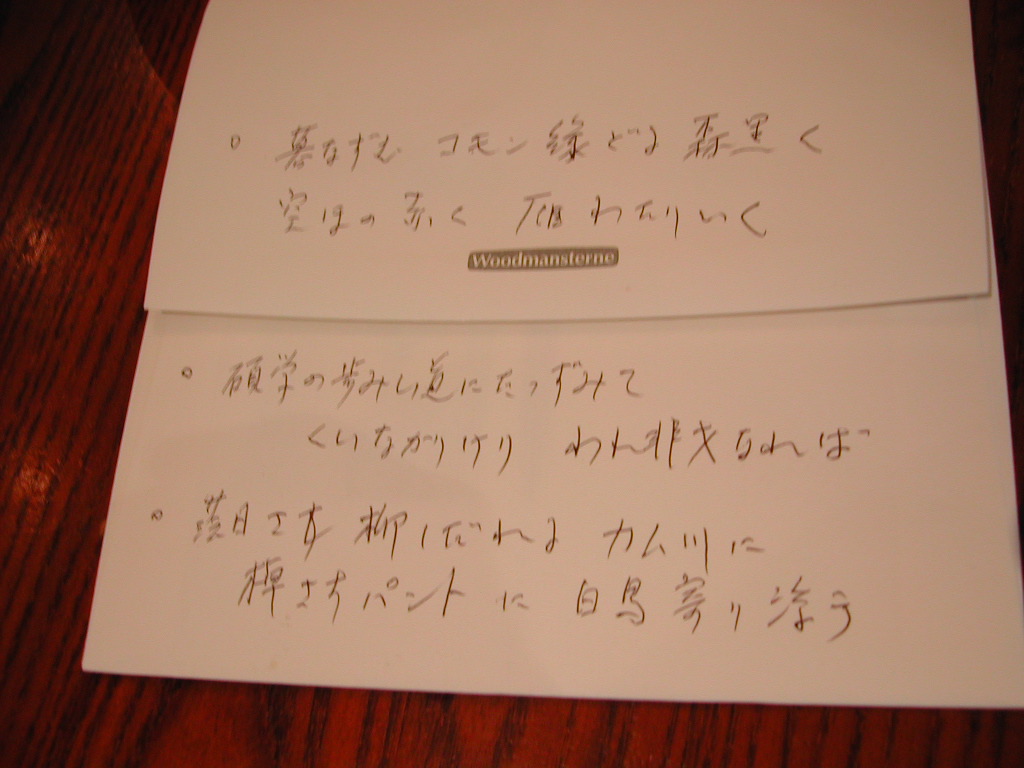 。暮なずむ コモン 縁どる 森黒く
空ほの赤く わたりいく
Woodmansterne
。碩学の歩みし道にたゝずみて
くいなかりけり われ非才なれば
。薄日さす 柳しだれる カム川に
棹さすパントに 白鳥寄り添う